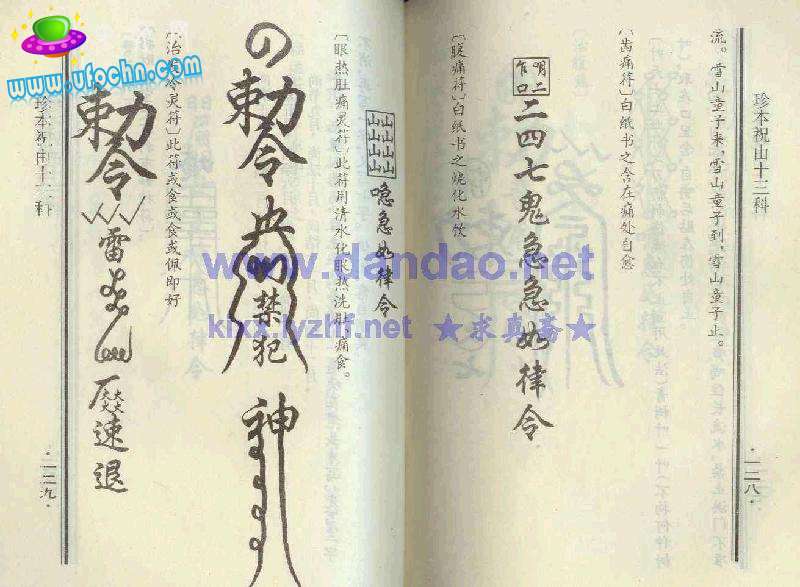 珍本祝由十三科
流。雪山童子来，雪山童子到，雪山童子止。
〔齿痛符〕白纸书之含在痛处自愈
二四七鬼急急如律令
痛符〕白纸书之烧化水饮
·一二八·
山山山山
山山山山
急如律令
〔眼热肚痛灵符〕此符用清水化眼热洗肚痛食。
勅令
禁犯
神
此符或食或食或佩即好
勅令
雷
速退
珍本祝由十三科
·一二九·
www.ufochn.com
www.dandao.net
klxx.lyzhf.net ★求真斋★